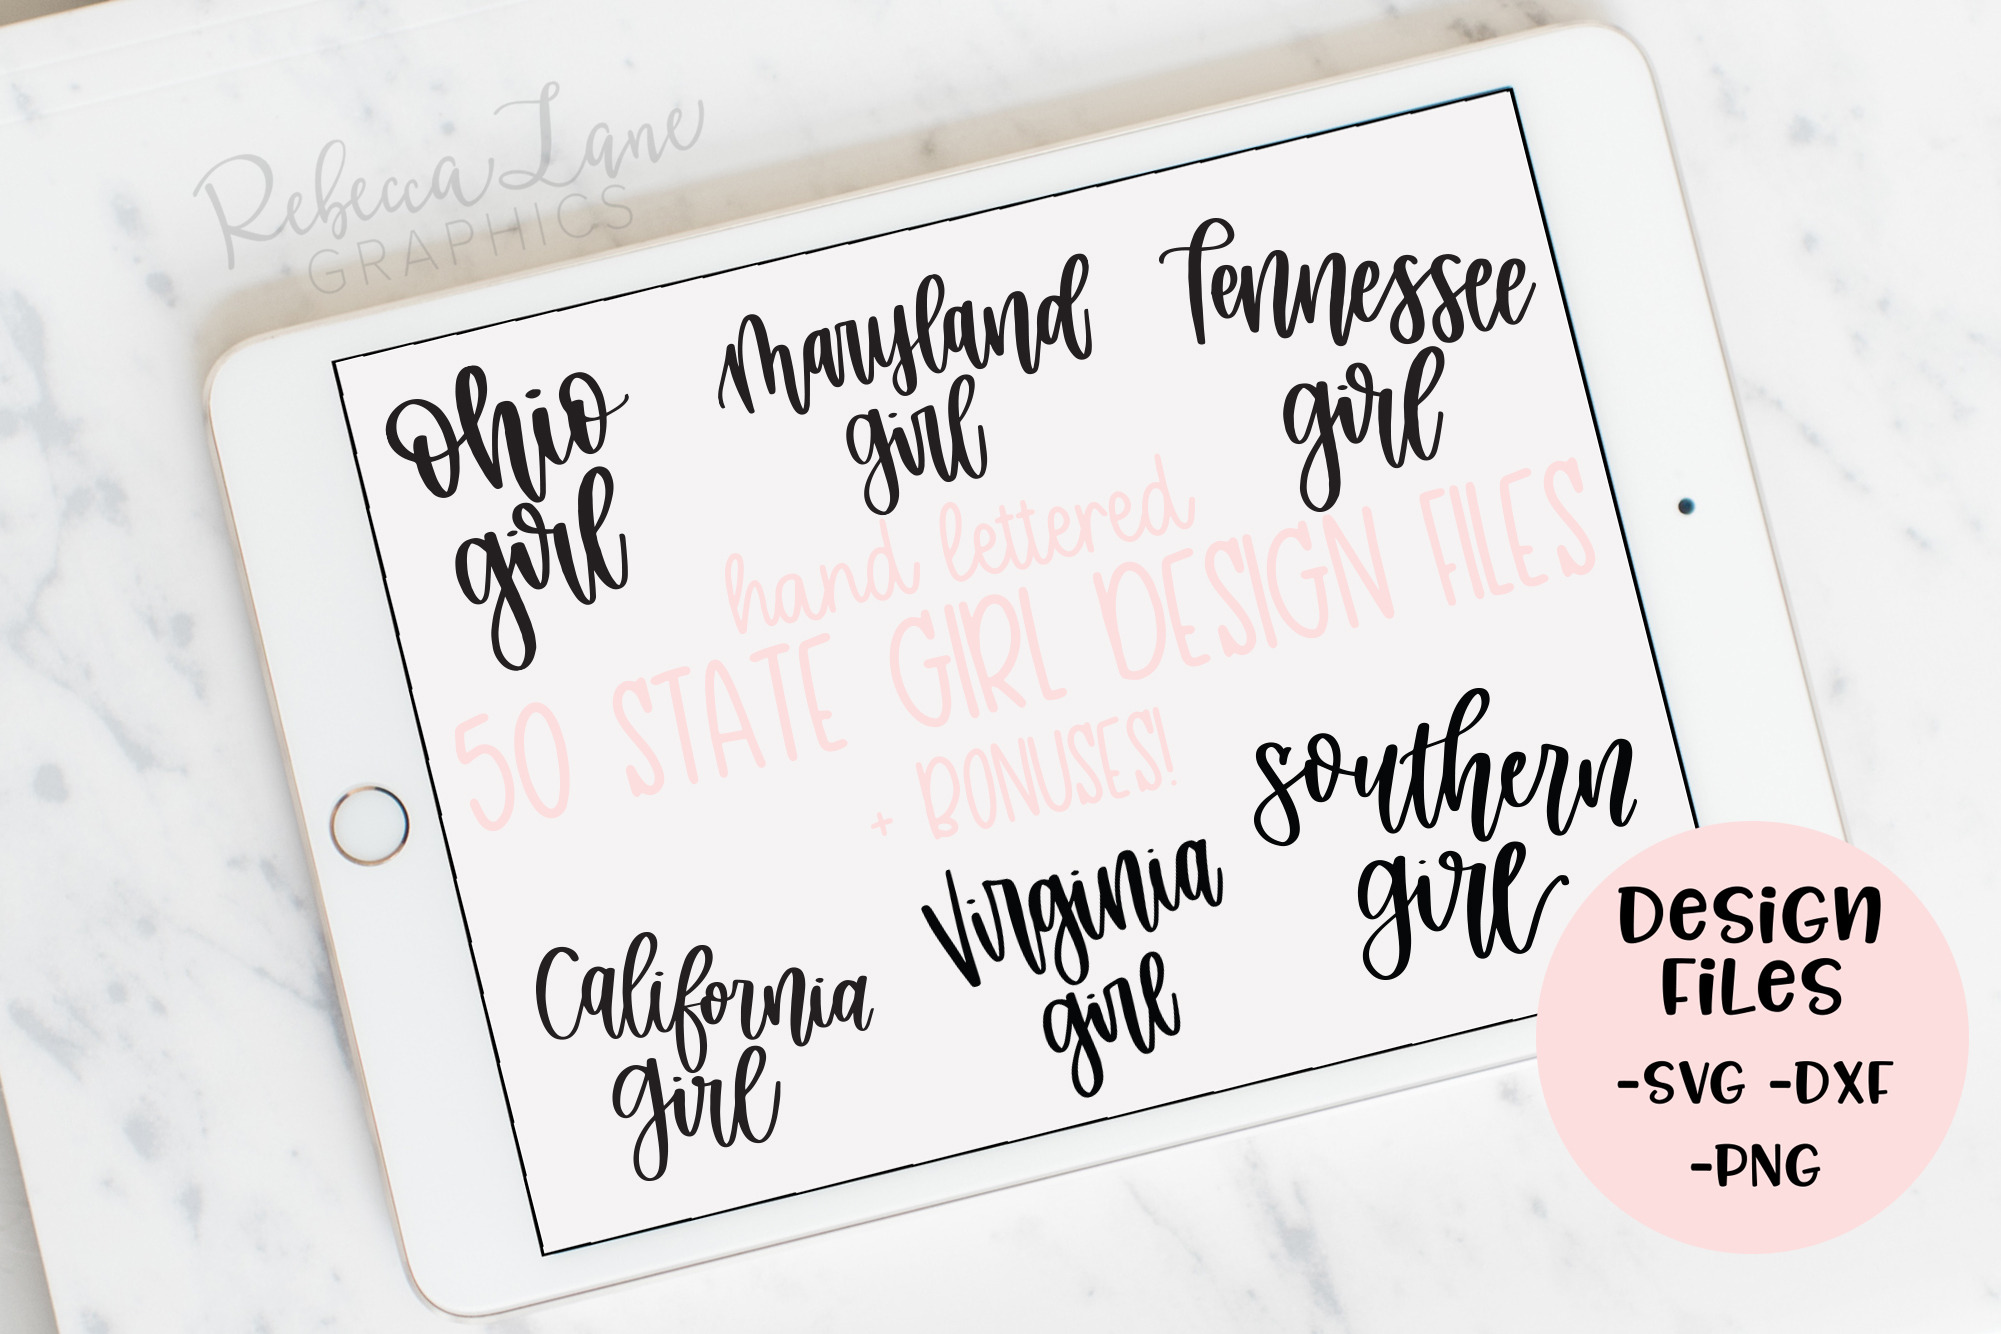 Rebecca Lane
GRAPHICS
Ohio
girl
Maryland
girl
Tennessee
girl
hand lettered
50 STATE GIRL DESIGN FILES
+ BONUSES!
California
girl
Virginia
girl
southern
girl
DESiGN
FiLeS
-SVG -DXF
-PNG